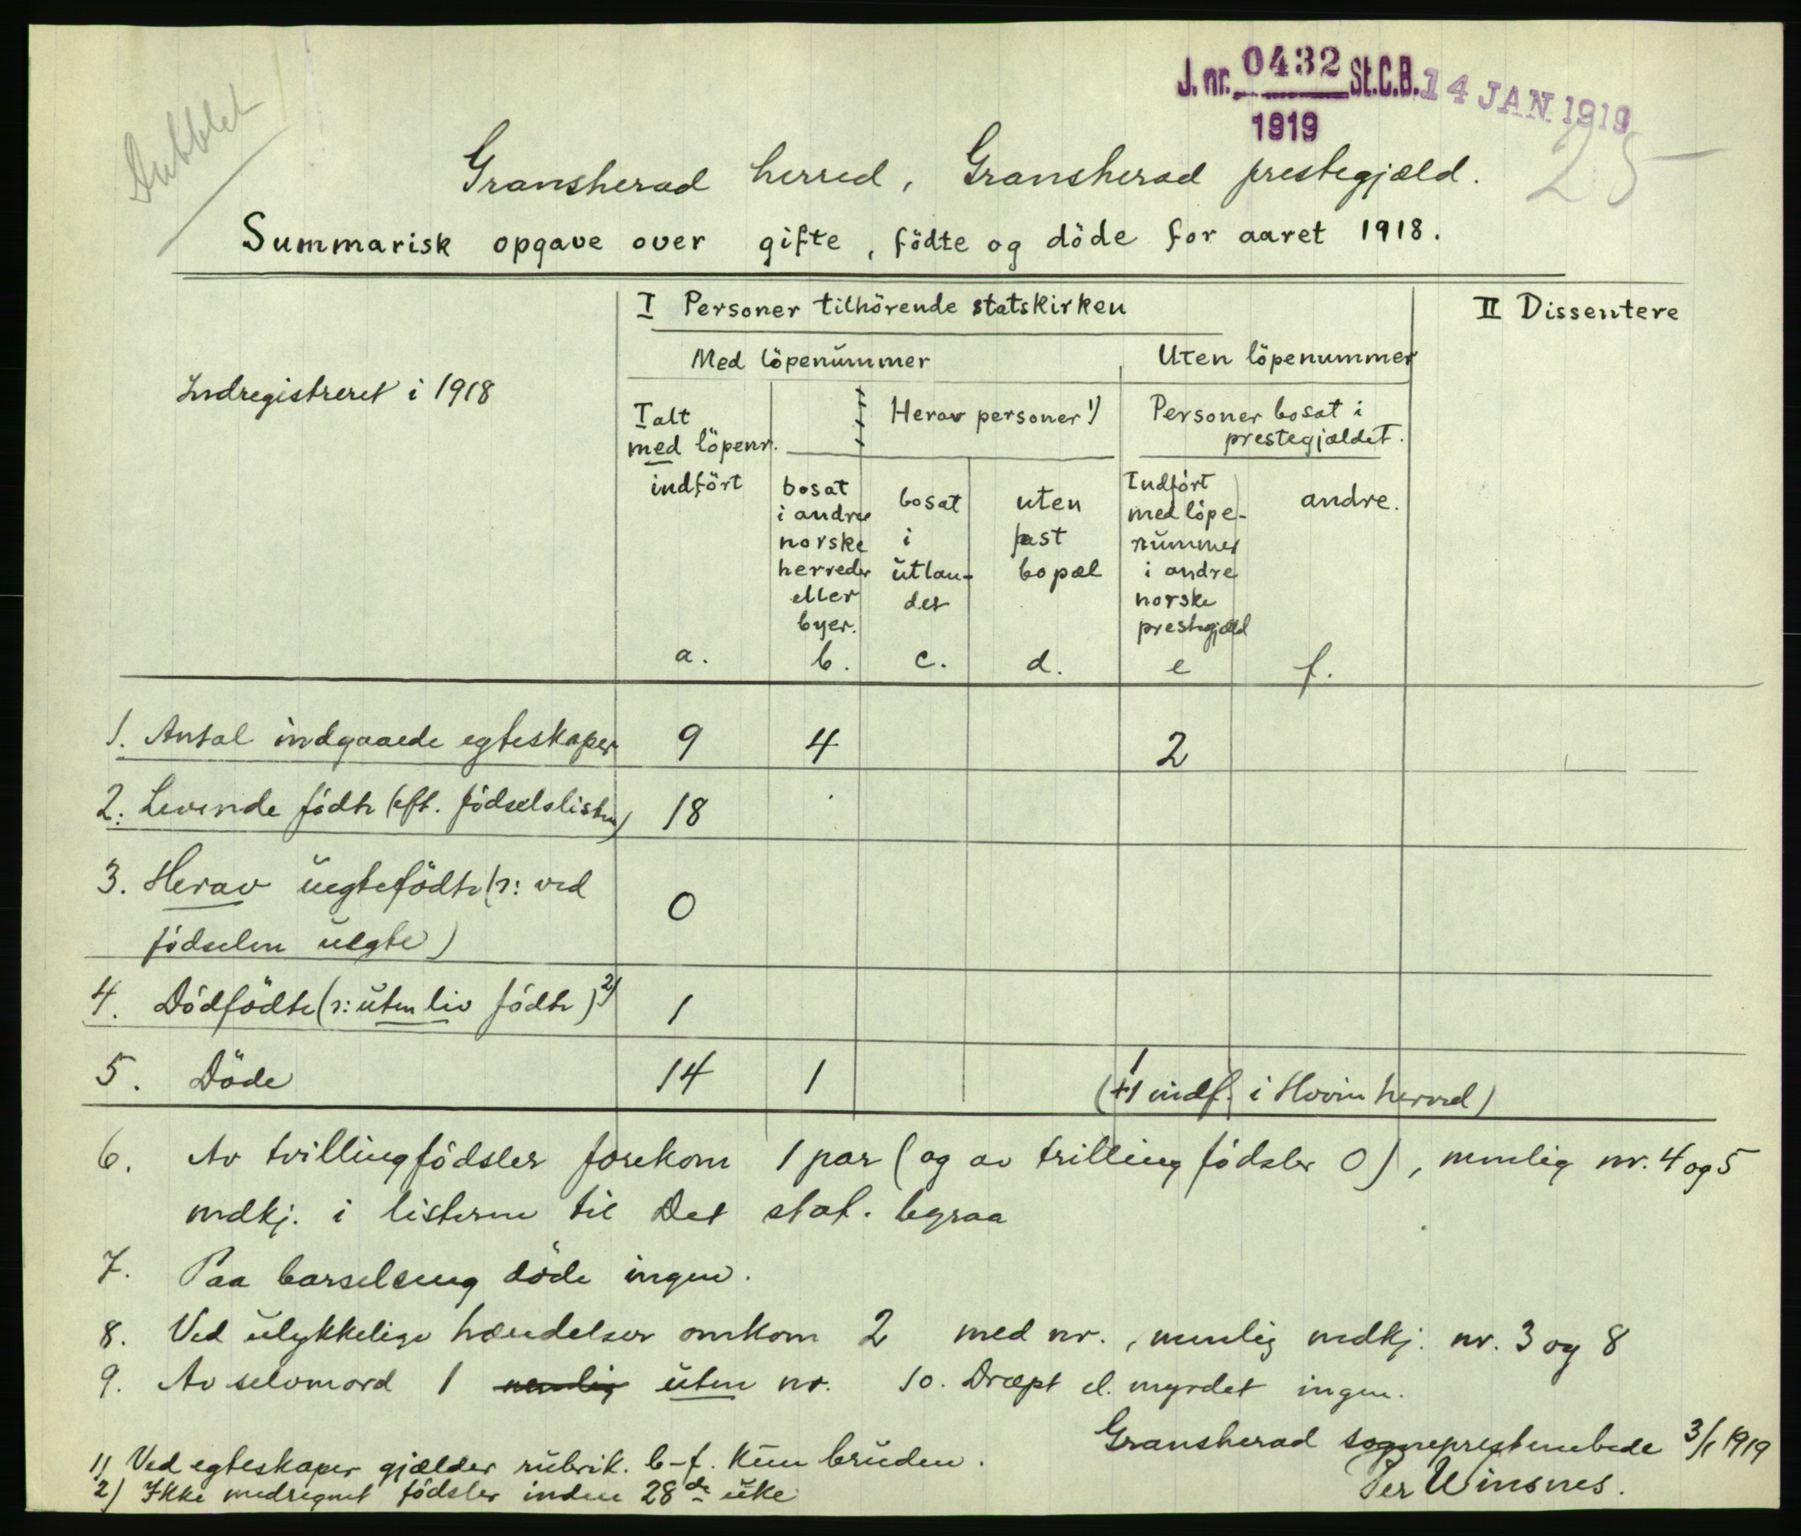 J. nr. 0432 St.C.B. 14 JAN 1919
1919
Dubblet
25
Gransherad herred, Gransherad prestegjæld.
Summarisk opgave over gifte, födte og döde for aaret 1918.
Indregistreret i 1918
I Personer tilhörende statskirken
II Dissentere
Med löpenummer
Uten löpenummer
I alt
med löpenr.
indfört
a.
Herav personer 1)
bosat
i andre
norske
herreder
eller
byer.
b.
bosat
i
utlan-
det
c.
uten
fast
bopæl
d.
Personer bosat i
prestegjældet.
Indfört
med löpe-
nummer
i andre
norske
prestegjæld
e
andre.
f.
1. Antal indgaaede egteskaper 9 4 2
2. Levende födte (eft. födselslisten) 18
3. Herav uegtefödte (ɔ: ved
födselen uegte) 0
4. Dödfödte (ɔ: uten liv födte) 2) 1
5. Döde 14 1 1
(+1 indf. i Hovin herred)
6. Av tvillingfödsler forekom 1 par (og av trillingfödsler 0), nemlig nr. 4 og 5
mdkj. i listerne til Det stat. byraa
7. Paa barselseng döde ingen.
8. Ved ulykkelige hændelser omkom 2 med nr., nemlig mdkj. nr. 3 og 8
9. Av selvmord 1 nemlig uten nr. 10. Dræpt el. myrdet ingen.
Gransherad sogneprestembede 3/1 1919
Per Winsnes.
1) Ved egteskaper gjælder rubrik. b-f. kun bruden.
2) Ikke medregnet födsler inden 28de uke